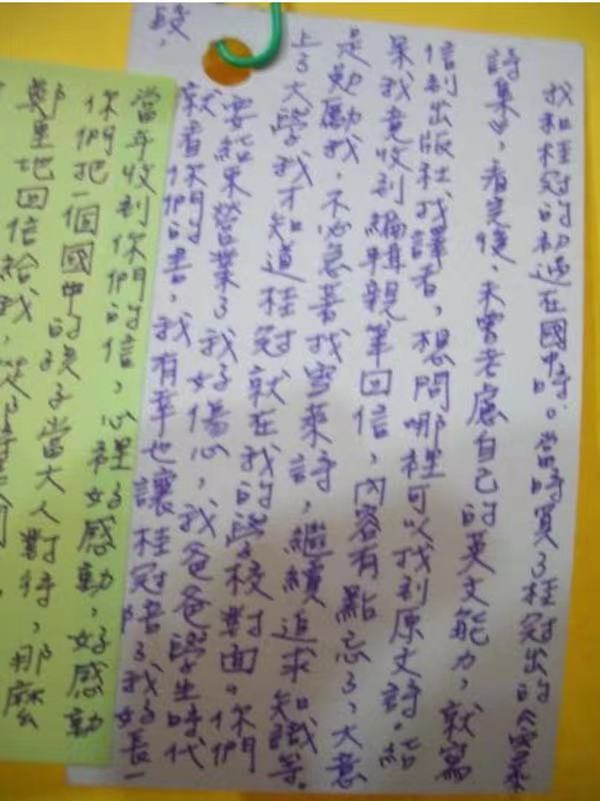 我和桂冠的初遇在國中時。當時買了桂冠出的《雪萊
詩集》,看完後,未曾考慮自己的英文能力,就寫
信到出版社找譯者,想問哪裡可以找到原文詩。結
果我竟收到編輯親筆回信,內容有點忘了,大意
是勉勵我,不必急著找雪萊詩,繼續追求知識等。
上了大學我才知道桂冠就在我的學校對面。你們
要結束營業了我好傷心,我爸爸學生時代
就看你們的書,我有幸也讓桂冠陪了我好長一
段,
當年收到你們的信,心裡好感動,好感動
你們把一個國中的孩子當大人對待,那麼
鄭重地回信給我,